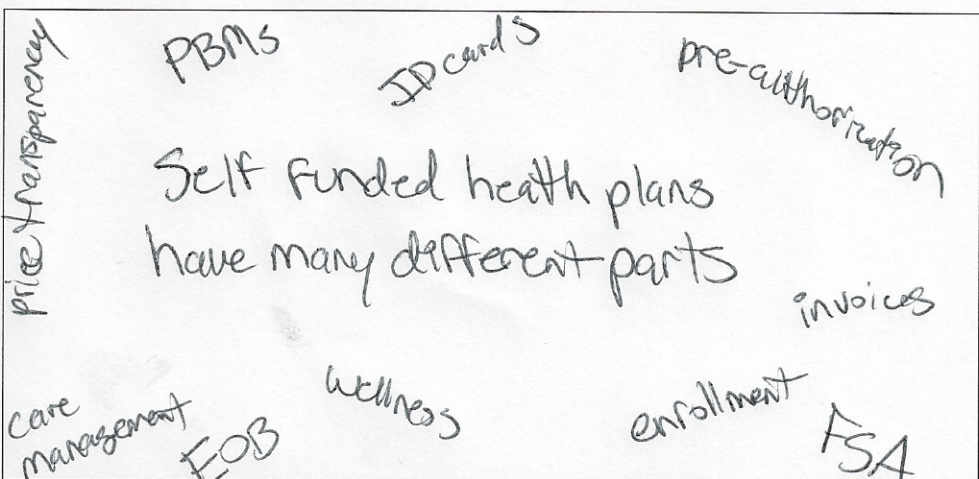 price transparency
PBMs
ID cards
pre-authorization
Self funded heath plans
have many different parts
invoices
care
management
EOB
wellness
enrollment
FSA